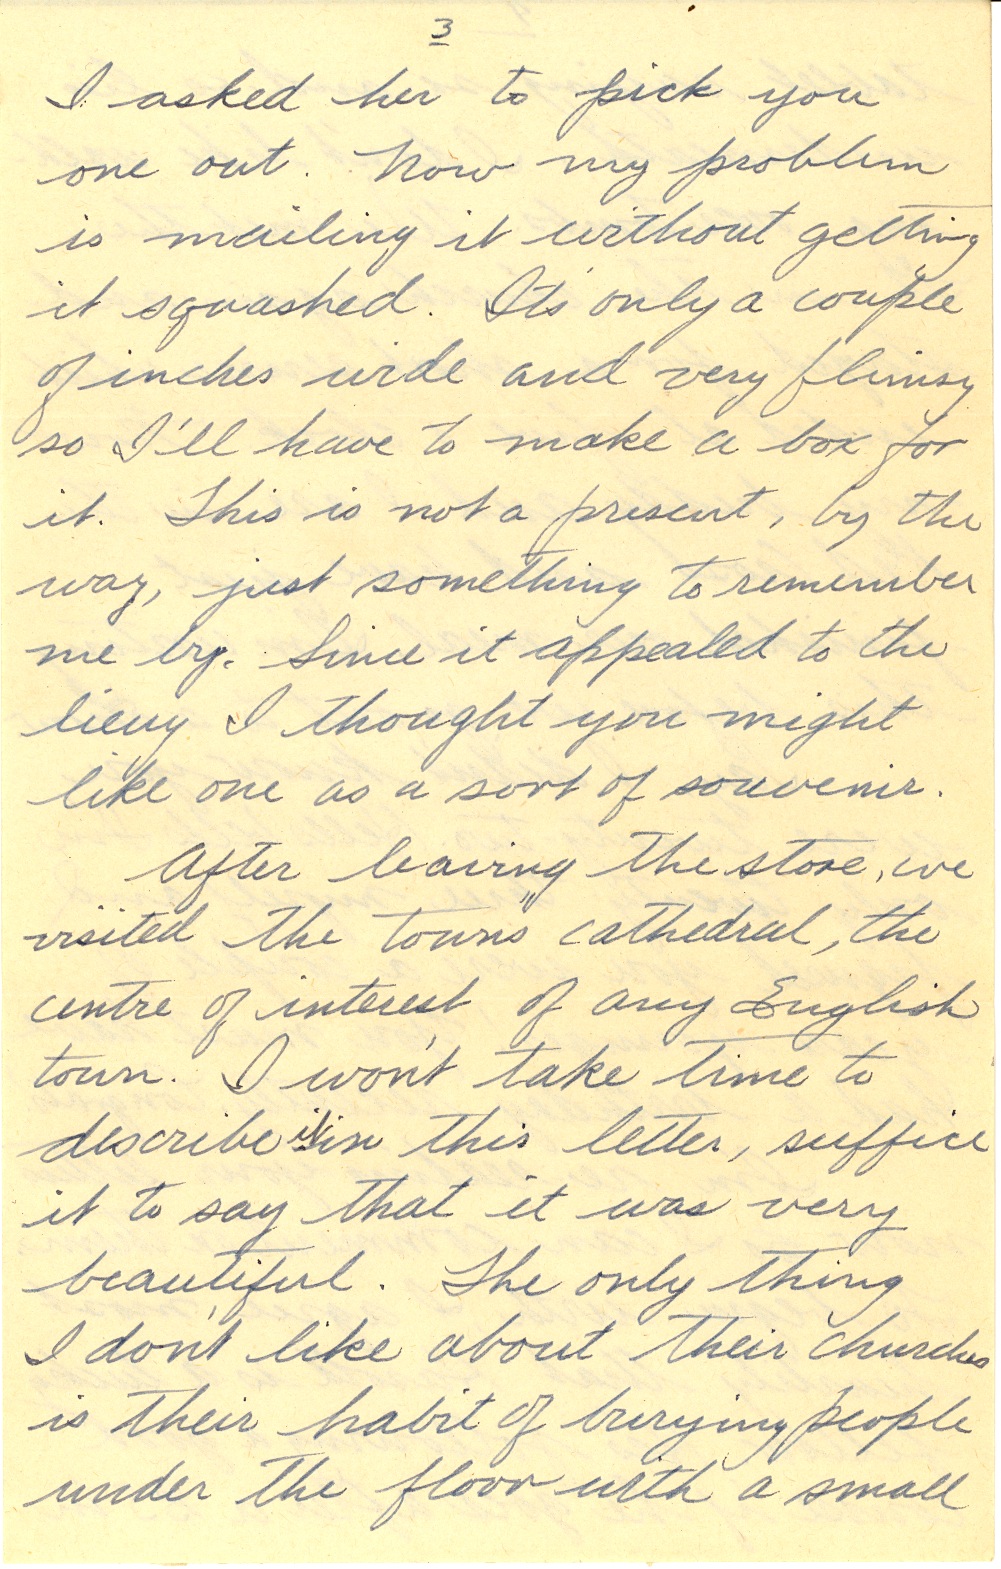 3
I asked her to pick you
one out. Now my problem
is mailing it without getting
it squashed. It's only a couple
of inches wide and very flimsy
so I'll have to make a box for
it. This is not a present, by the
way, just something to remember
me by. Since it appealed to the
lieuy I thought you might
like one as a sort of souvenir.
After leaving the store, we
visited the town's cathedral, the
centre of interest of any English
town. I won't take time to
describe it in this letter, suffice
it to say that it was very
beautiful. The only thing
I don't like about their churches
is their habit of burying people
under the floor with a small